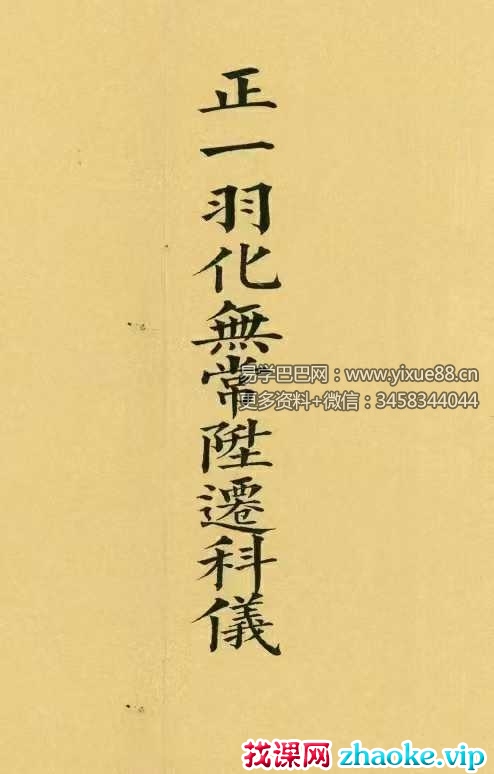 正一羽化無常陞遷科儀
易学巴巴网：www.yixue88.cn
更多资料+微信：3458344044
找课网 zhaoke.vip